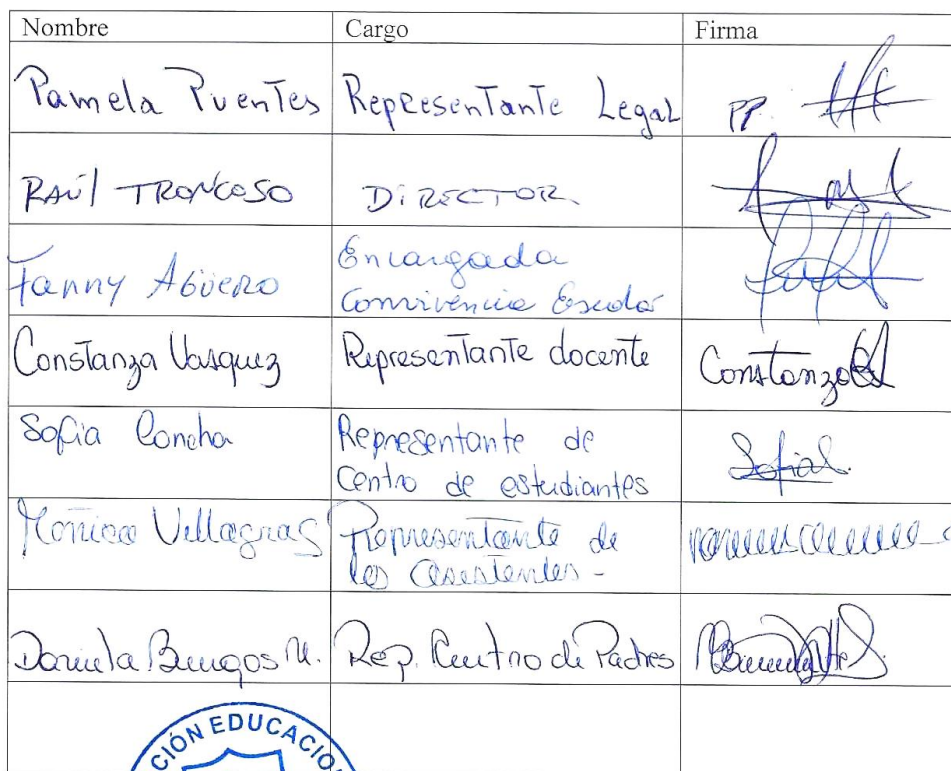 Nombre Cargo Firma
Pamela Puentes Representante Legal PP.
RAÚL TRONCOSO DIRECTOR
Fanny Agüero Encargada
Convivencia Escolar
Constanza Vasquez Representante docente Constanza
Sofia Concha Representante de
Centro de estudiantes Sofia
Monica Villagras Representante de
los Asistentes -
Daniela Burgos M. Rep. Centro de Padres
CIÓN EDUCACIO